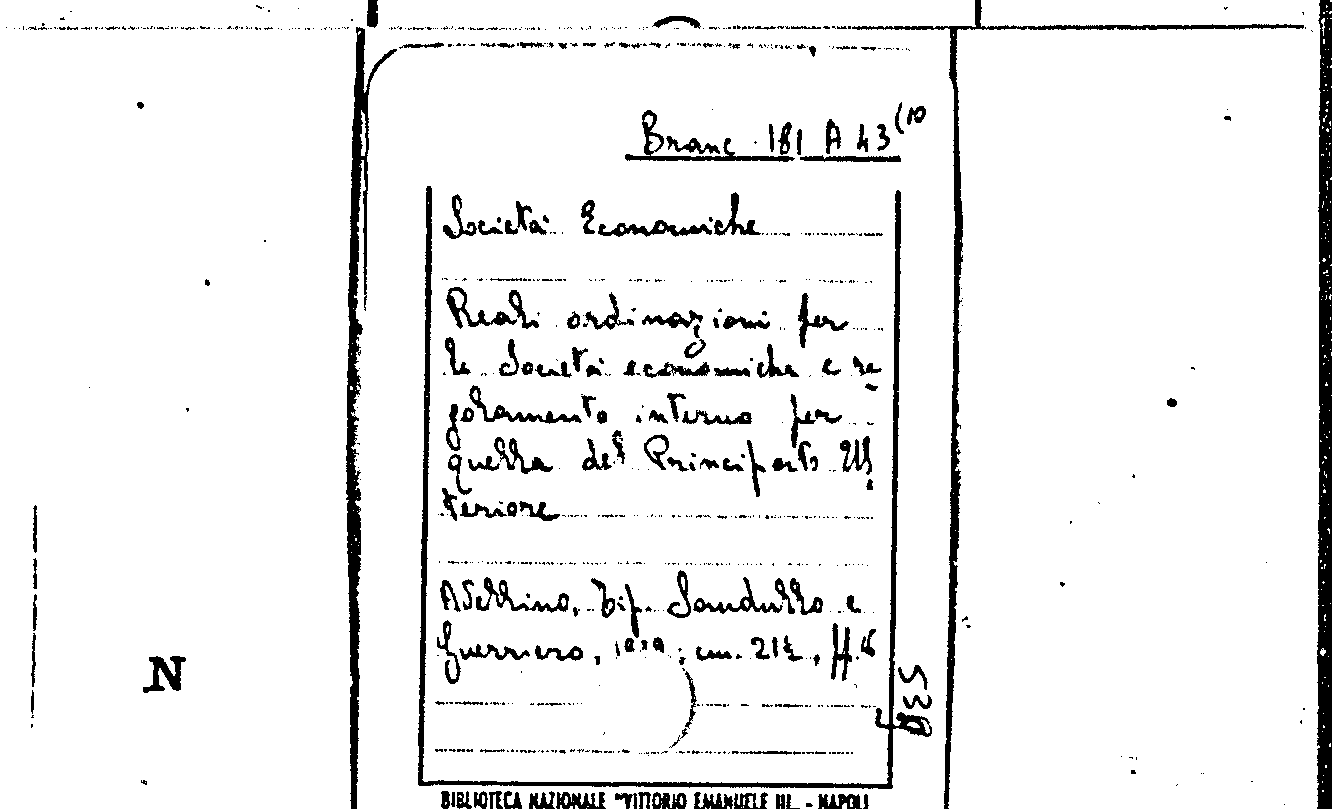 Branc. 181 A 43(10
Società Economiche
Reali ordinazioni per
le Società economiche e re
golamento interno per
quella del Principato Ul
teriore
Avellino, Tip. Sandullo e
Guerriero, cm. 21½,
N
BIBLIOTECA NAZIONALE "VITTORIO EMANUELE III" - NAPOLI